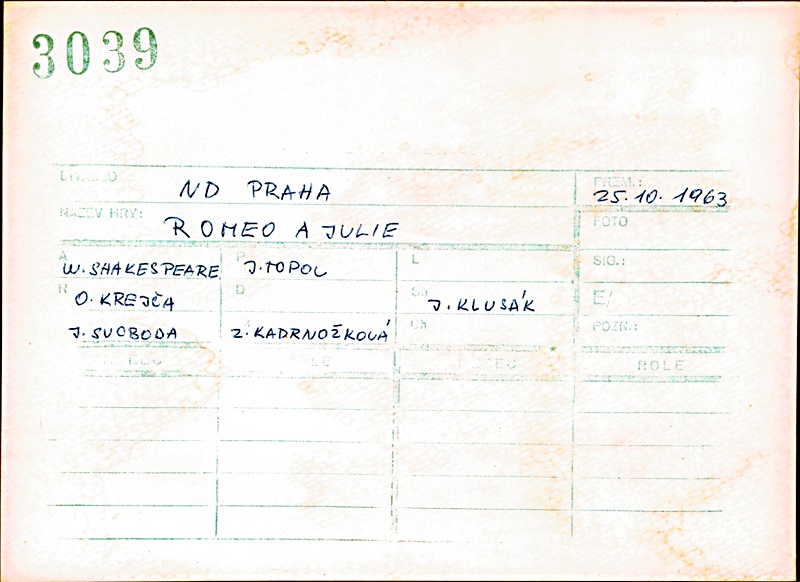 3039
DIVADLO ND PRAHA PREM.: 25.10.1963
NÁZEV HRY: ROMEO A JULIE FOTO
A W. SHAKESPEARE P J. TOPOL L SIG.:
R O. KREJČA D J. KLUSÁK E/
J. SVOBODA Z. KADRNOŽKOVÁ Ch POZN.:
ROLE